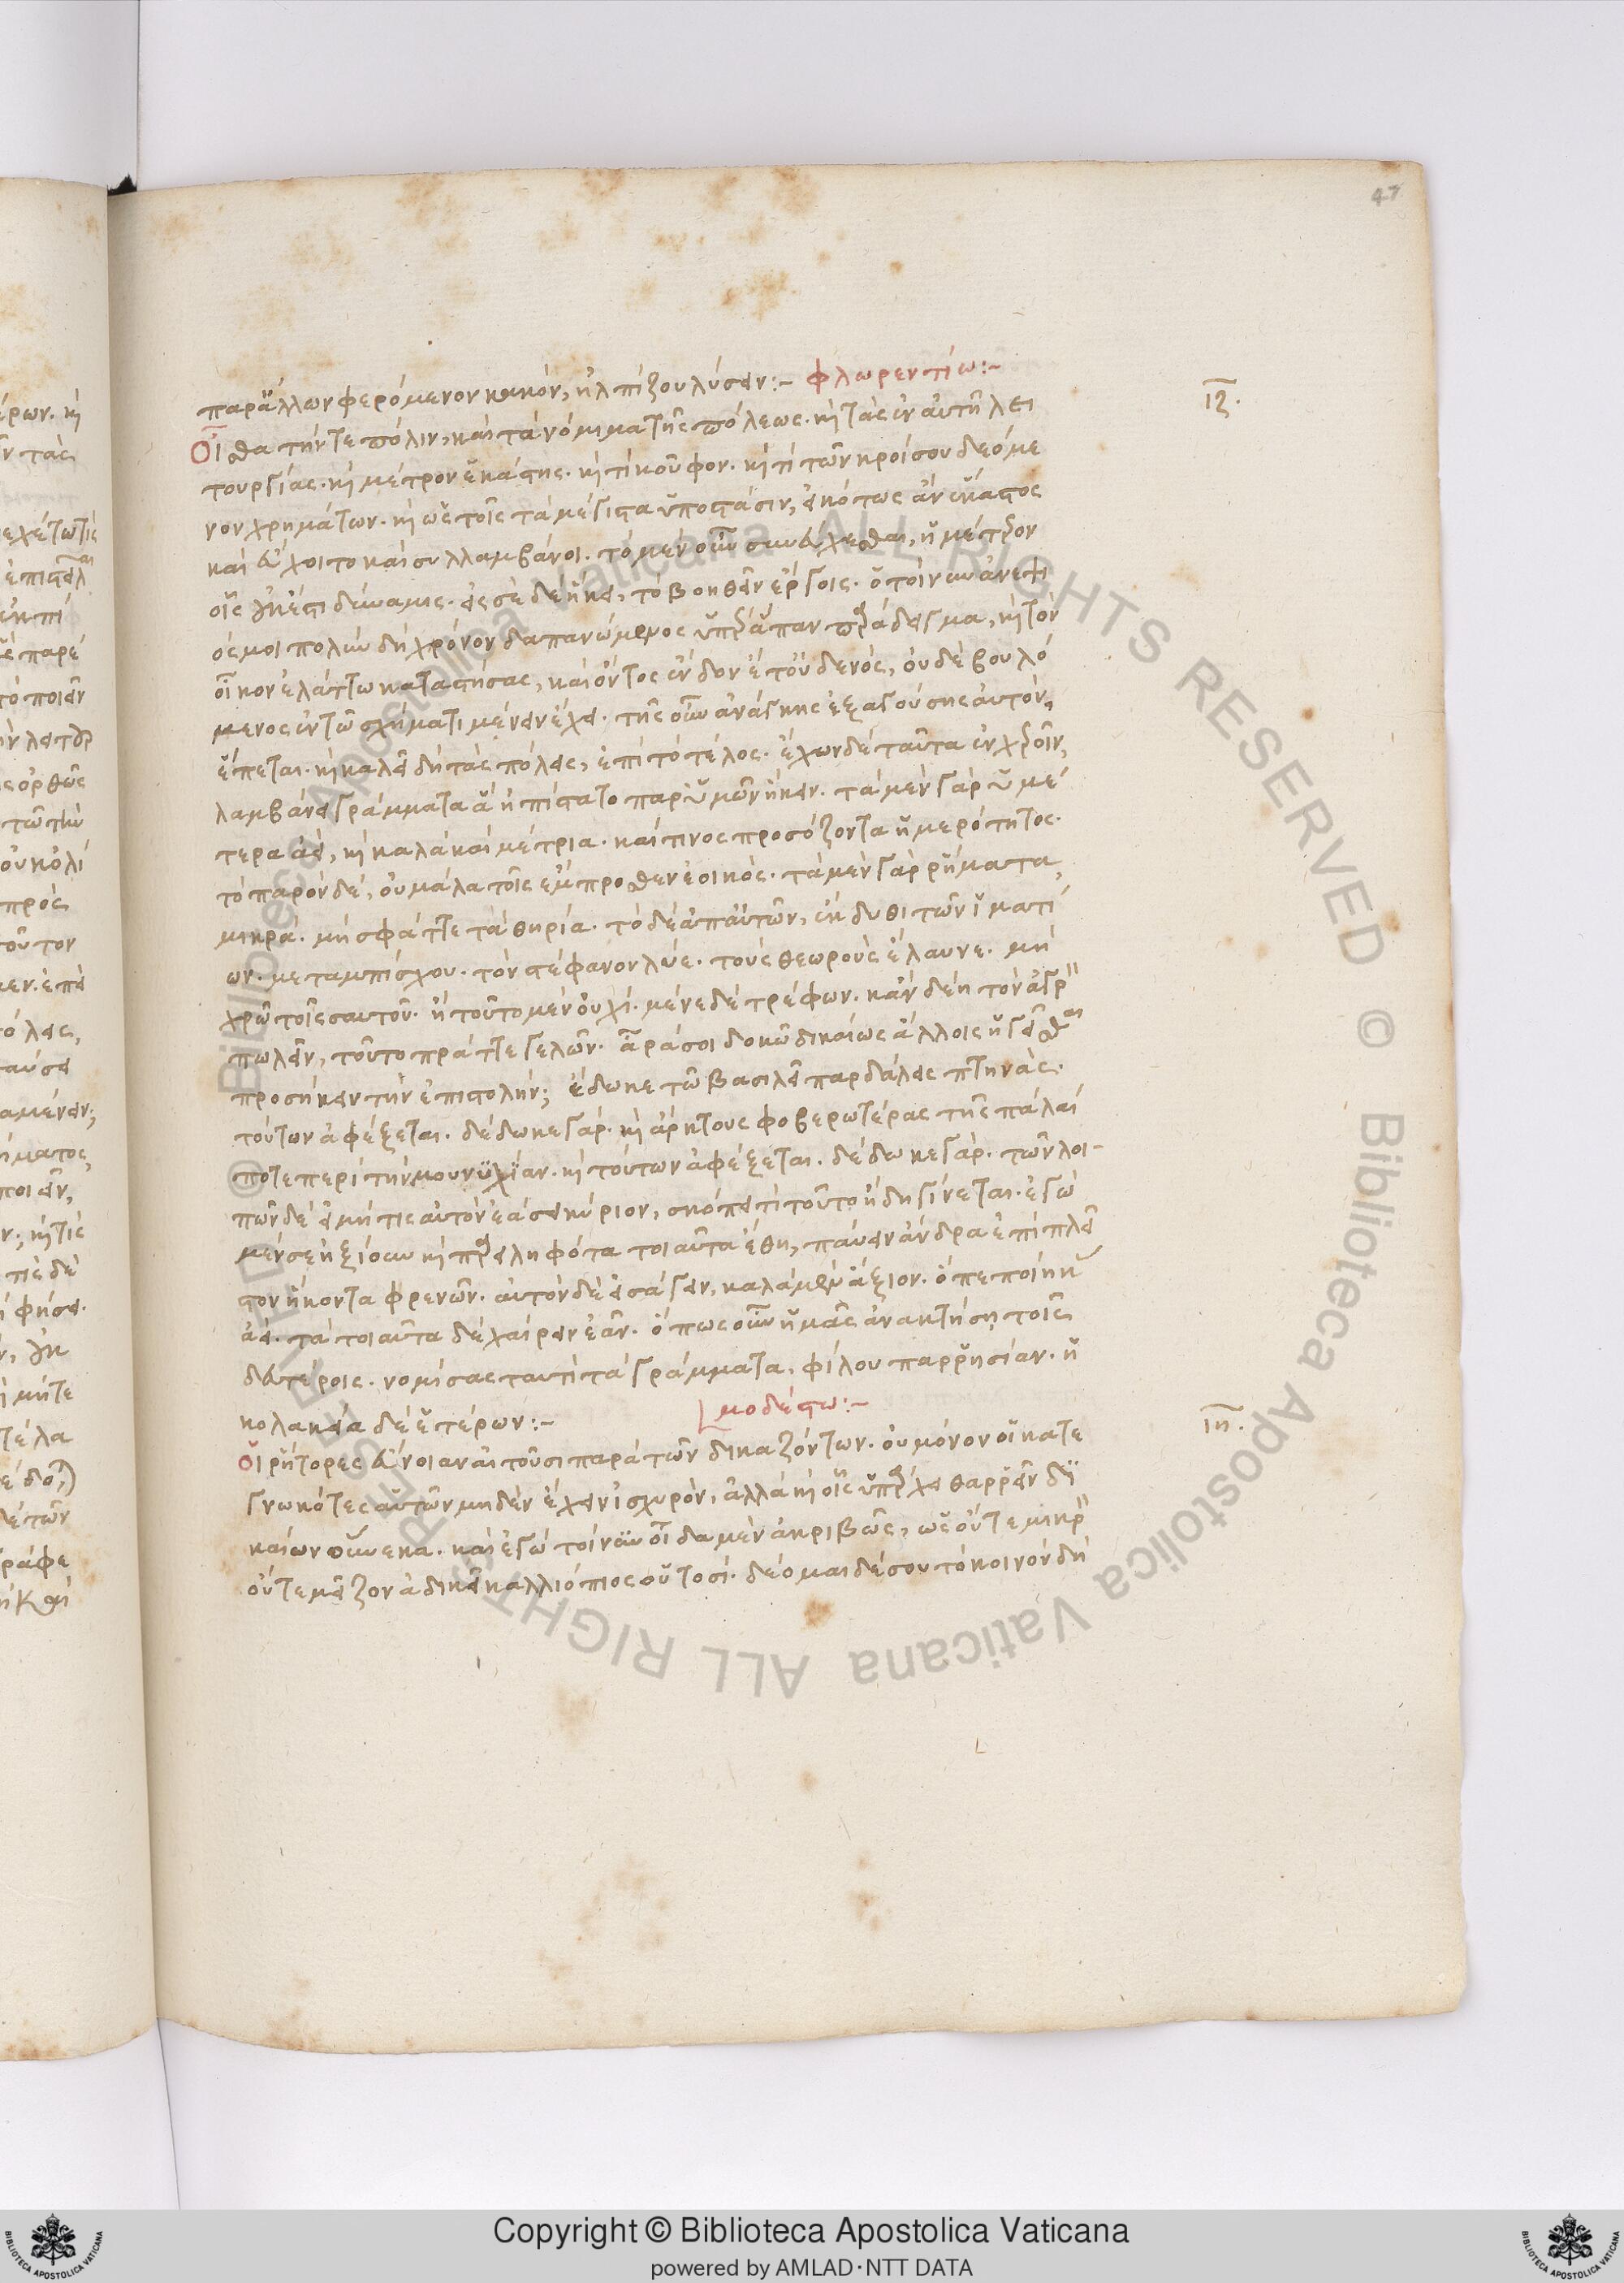 47
παρἄλλων φερόμενον κακόν, ἤλπιζον λύσειν:– φλωρεντίω:–
ιζ.
Οἶσθα τήν τε πόλιν, καὶ τὰ νόμιμα τῆς πόλεως. κὶ τὰς ἐν αὐτῆ λει
τουργίας. κὶ μέτρον ἑκάστης. κὶ τί κοῦφον. κὶ τί τῶν κροίσου δεόμε
νον χρημάτων. κὶ ὡς τοῖς τὰ μέγιστα ὑποστᾶσιν, εἰκότως ἂν ἕκαστος
καὶ εὔχοιτο καὶ συλλαμβάνοι. τὸ μὲν οὖν συνεύχεσθαι, ἡμέτερον
οἷς ἔνεστι δύναμις. εἰς σὲ δὲ ἥκει, τὸ βοηθεῖν ἔργοις. ὅ τοίνυν ἀνε
ός μοι πολὺν δὴ χρόνον δαπανώμενος ὑπὲρ ἅπαν παράδειγμα, κὶ τὸν
οἶκον ἐλάττω καταστήσας, καὶ ὄντος ἔνδον ἔτ' οὐδενός, οὐδὲ βουλό
μενος ἐν τῶ σχήματι μένειν ἔχει. τῆς οὖν ἀνάγκης ἐξαγούσης αὐτόν,
ἕπεται. κὶ καλεῖ δὴ τὰς πόλεις, ἐπὶ τὸ τέλος. ἔχων δὲ ταῦτα ἐν χεροῖν,
λαμβάνει γράμματα ἃ ἠπίστατο παρ' ὑμῶν ἥκειν. τὰ μὲν γὰρ ὑμέ
τερα ἀεί, κὶ καλὰ καὶ μέτρια. καί τινος προσόζοντα ἡμερότητος.
τὸ παρὸν δέ, οὐ μάλα τοῖς ἔμπροσθεν ἐοικός. τὰ μὲν γὰρ ῥήματα,
μικρά. μὴ σφάττε τὰ θηρία. τὸ δὲ ἀπ' αὐτῶν, ἔκδυθι τῶν ἱματί
ων. μεταμπίσχου. τὸν στέφανον λύε. τοὺς θεωροὺς ἔλαυνε. μὴ
χρῶ τοῖς σαυτοῦ. ἢ τοῦτο μὲν οὐχί. μένε δὲ τρέφων. κἂν δέῃ τὸν ἀγρ
πωλεῖν, τοῦτο πρᾶττε γελῶν. ἆρά σοι δοκῶ δικαίως ἄλλοις ἡγεῖσθαι
προσήκειν τὴν ἐπιστολήν; ἔδωκε τῶ βασιλεῖ παρδάλεις πτηνάς.
τούτων ἀφέξεται. δέδωκε γάρ. κὶ ἄρκτους φοβερωτέρας τῆς πάλαί
ποτε περὶ τὴν μουνυχίαν. κὶ τούτων ἀφέξεται. δέδωκε γάρ. τῶν λοι–
πῶν δὲ εἰ μή τις αὐτὸν ἐάσει κύριον, σκόπει τί τοῦτο ἤδη γίνεται. ἐγὼ
μέν σε ἠξίουν κὶ παρειληφότα τοιαῦτα ἔθη, παύειν ἄνδρα ἐπὶ πλεῖ
στον ἥκοντα φρενῶν. αὐτὸν δὲ εἰσάγειν, καλὰ μὲν ἄξιον. ὃ πεποίηκ
ἀεί. τὰ τοιαῦτα δὲ χαίρειν ἐᾶν. ὅπως οὖν ἡμᾶς ἀνακτήσῃ τοῖς
δευτέροις. νομίσας ταυτὶ τὰ γράμματα, φίλου παρρησίαν. ἢ
κολακεία δὲ ἑτέρων:– μοδέστω:–
ιη.
Οἱ ῥήτορες εὔνοιαν αἰτοῦσι παρὰ τῶν δικαζόντων. οὐ μόνον οἱ κατε
γνωκότες αὑτῶν μηδὲν ἔχειν ἰσχυρόν, ἀλλὰ κὶ οἷς ὑπάρχει θαρρεῖν δι
καίων οὕνεκα. καὶ ἐγὼ τοίνυν οἶδα μὲν ἀκριβῶς, ὡς οὔτε μικρ
οὔτε μεῖζον ἀδικεῖ καλλιόπιος οὑτοσί. δέομαι δέ σου τὸ κοινὸν δὴ